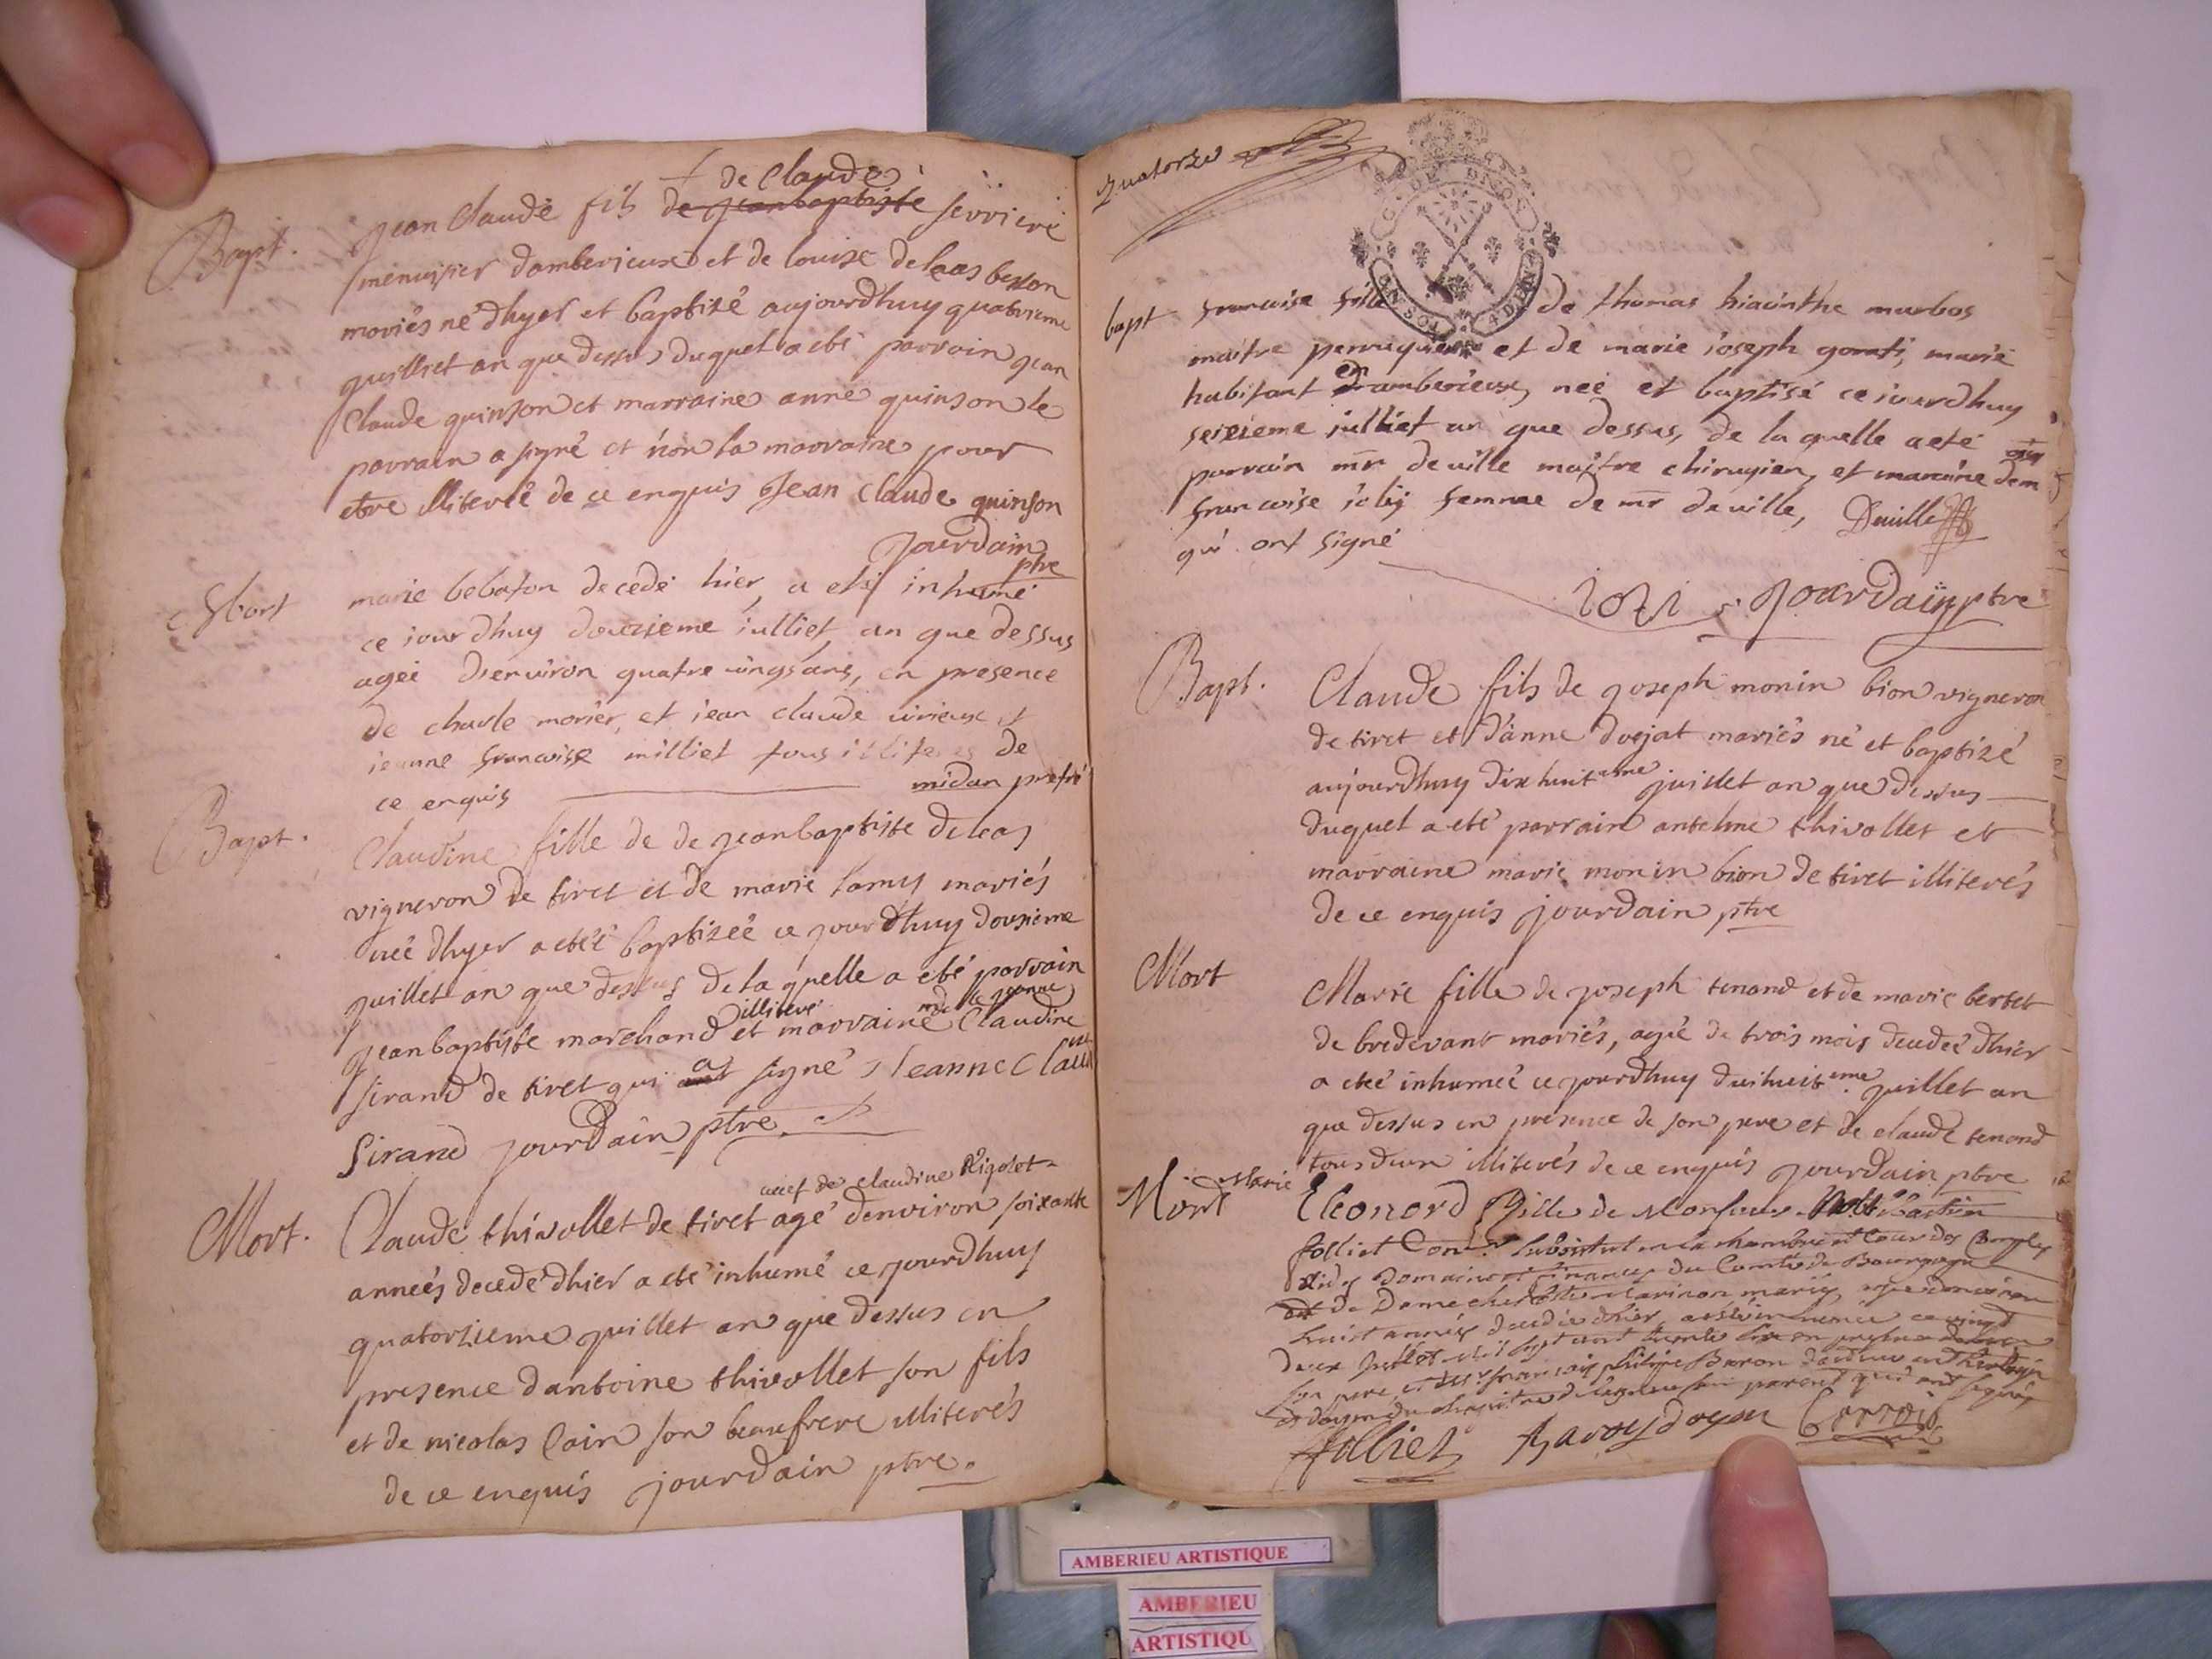 Bapt.
+ de Claude
Jean Claude fils de jean baptiste serriere
menuisier d'amberieux et de louise delaas besson
mariés né dhyer et baptizé aujourdhuy quatrieme
juilliet an que dessus duquel a eté parrain jean
Claude quinson et marraine anne quinson le
parrain a signé et non la marraine pour
etre illiterée de ce enquis Jean Claude quinson
Jourdain
ptre
Mort
marie bebaton decedé hier, a eté inhumé
ce iourdhuy douzieme iulliet an que dessus
ageé d'environ quatre vingsans, en presence
de charle morier, et iean claude virieux et
ieanne francoise milliet tous illiteres de
ce enquis midan pretre
Bapt.
Claudine fille de de jeanbaptiste deleas
vigneron de tiret et de marie lamy mariés
neé dhyer a eteé baptizeé ce jourdhuy dousieme
juillet an que dessus de la quelle a eté parrain
illiteré mde le jeanne
jeanbaptiste marchand et marraine Claudine
sirand de tiret qui a ont signé Jeanne Claudine
Sirand jourdain ptre
veuf de claudine Rigolet
Mort.
Claude thivollet de tiret agé denviron soixante
anneés decedé dhier a eté inhumé ce jourdhuy
quatorzieme juillet an que dessus en
presence dantoine thivollet son fils
et de nicolas Cain son beaufrere illiterés
de ce enquis jourdain ptre.
quatorze
G. DE DIJON
bapt
francoise fille de thomas hiacinthe marbos
maitre perruquier et de marie ioseph gorati, marié
habitant en amberieux, neé et baptisé ceiourdhuy
seizieme iulliet an que dessus, de la quelle a eté
parrain mr deville maitre chirugien, et maraine dem
francoise ioly femme de mr deville, Deville
qui ont signé
ioli Jourdain ptre
Bapt.
Claude fils de joseph monin bion vigneron
de tiret et d'anne dvojat mariés né et baptizé
aujourdhuy dix huitieme juillet an que dessus
duquel a eté parrain antelme thivollet et
marraine marie monin bion de tiret illiterés
de ce enquis jourdain ptre
Mort
Marie fille de joseph tenand et de marie bertet
de bredevant mariés, ageé de trois mois decedeé dhier
a eté inhumeé ce jourdhuy dixhuitieme juillet an
que dessus en presence de son pere et de claude tenand
tous deux illiterés de ce enquis jourdain ptre
Mort
Marie Eleonord fille de Monsieur
folliet Conr Substitut en la chambre et Cour des Comptes
Aides Domaines et finances du Comté de Bourgogne
et de Dame Marinon mariés, agee denviron
huict années decedée dhier, a esté inhumée ce vingt
deux juillet mil sept cent trente
son pere et de françois philippe Baron docteur en theologie
et doyen du chapitre son parent qui ont signés
folliet Baron doyen